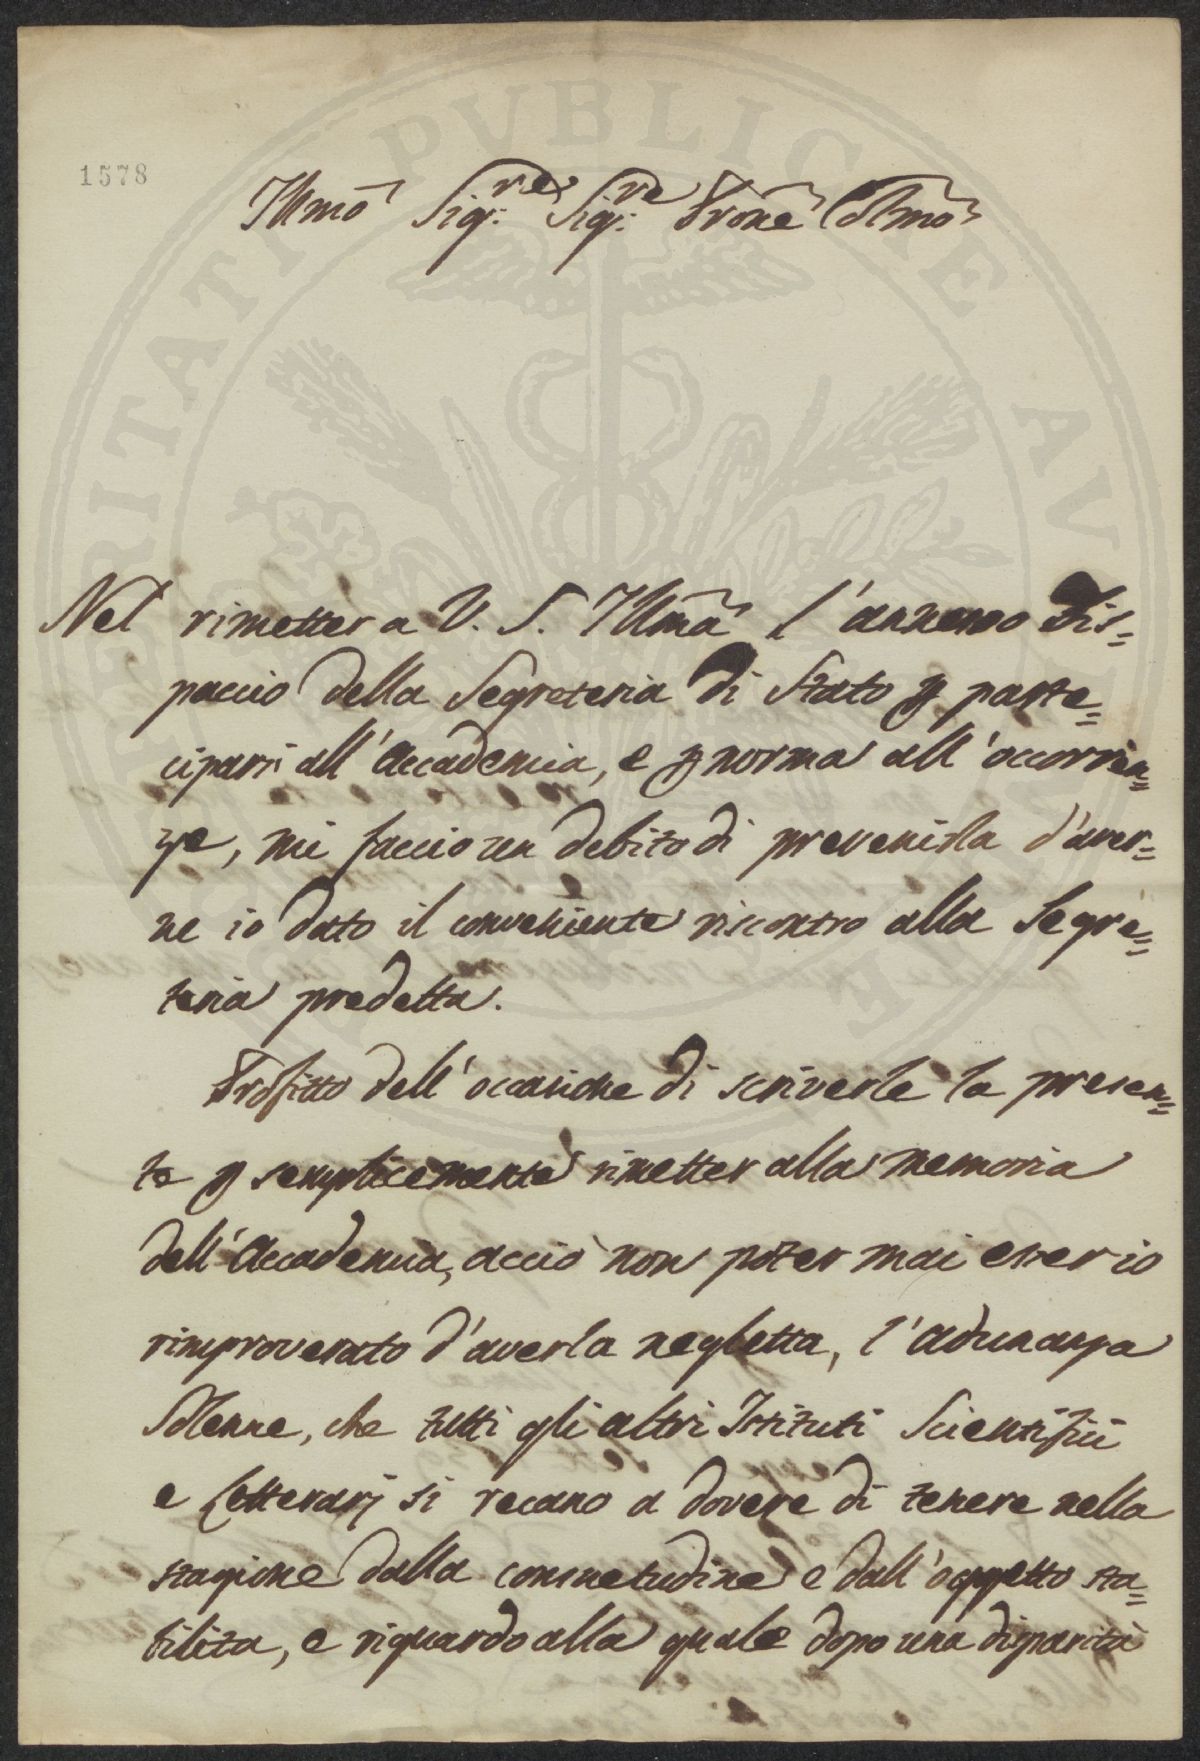 1578
Illmõ Sig:re Sig:re Prone Colmõ
Nel rimetter a V. S. Illmã l'annesso Dis=
paccio della Segreteria di Stato p parte=
ciparsi all'Accademia, e p norma all'occorren=
ze, mi faccio un debito di prevenirla d'aver=
ne io dato il conveniente riscontro alla Segre=
teria predetta.
Profitto dell'occasione di scriverle la presen=
te p semplicemente rimetter alla memoria
dell'Accademia, acciò non poter mai esser io
rimproverato d'averla negletta, l'adunanza
Solenne, che tutti gli altri Istituti Scientifici
e Letterarj si recano a dovere di tenere nella
stagione dalla consuetudine e dall'oggetto sta=
bilita, e riguardo alla quale dopo una disparità